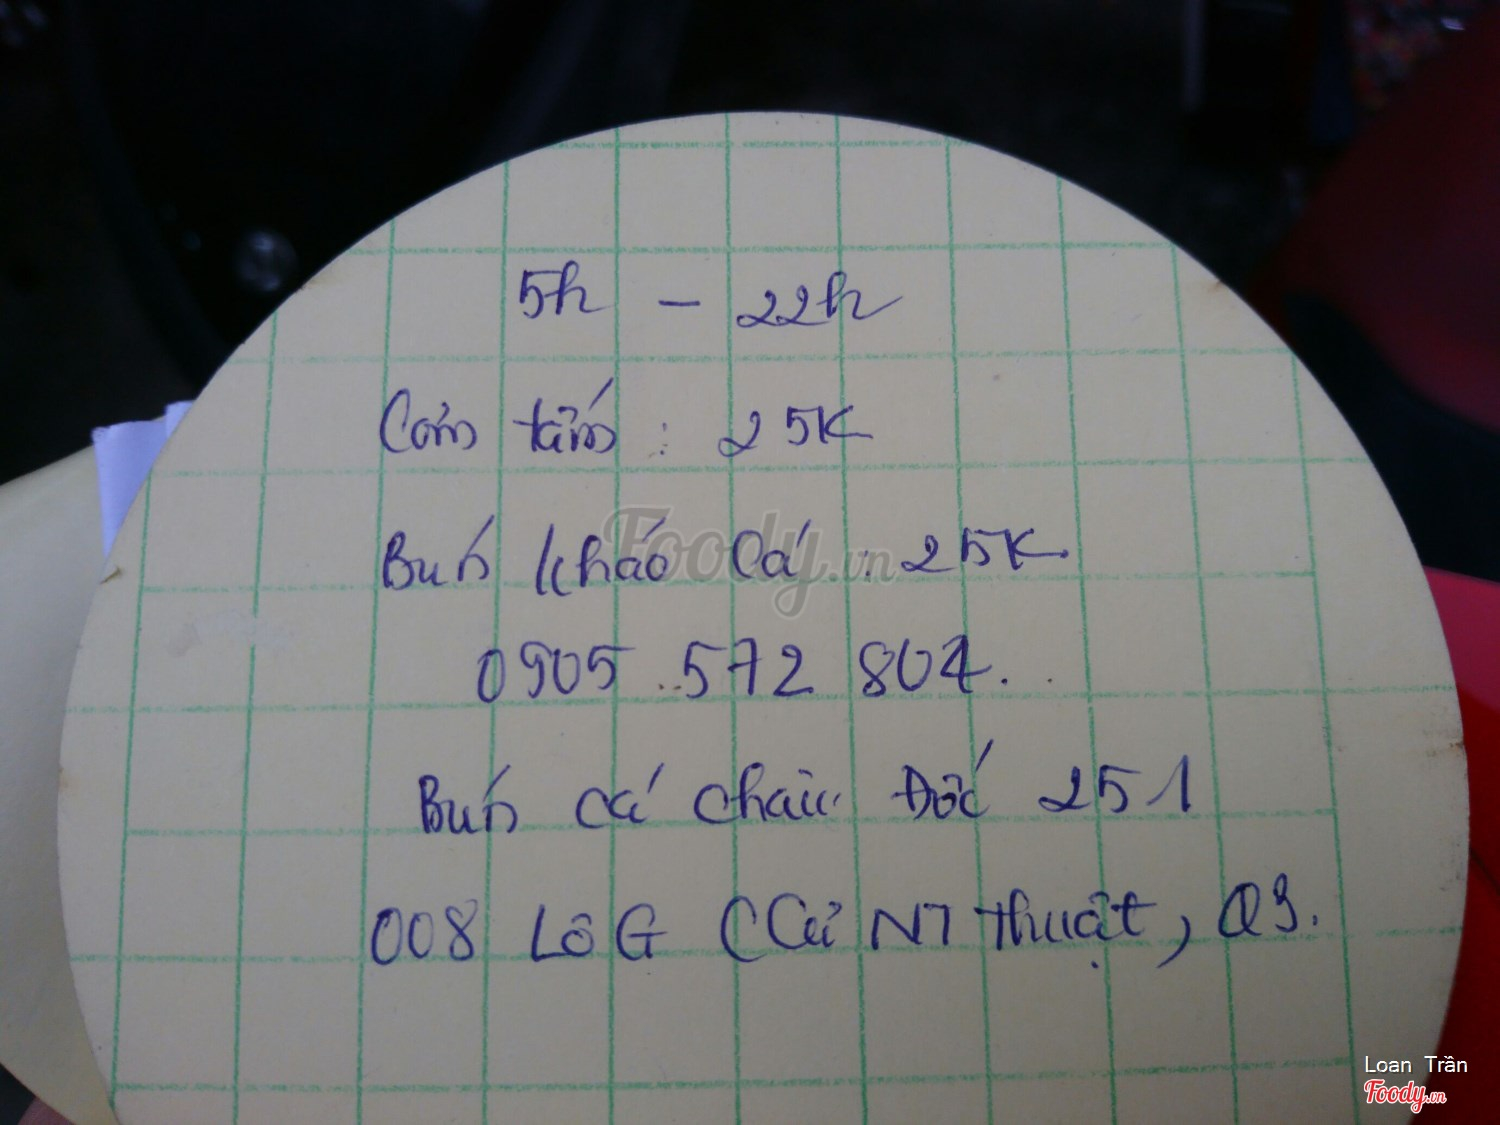 5h - 22h
Cơm tấm : 25K
Bún kháo Cá : 25K.
0905 572 804.
Bún cá châu Đốc 251
008 Lô G (Cư NT Thuật, Q3.
Foody.vn
Loan Trần
Foody.vn